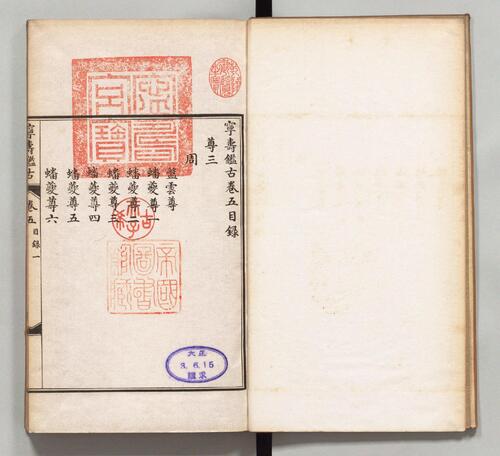 寧壽鑑古卷五目錄
尊三
周
盤雲尊
蟠夔尊一
蟠夔尊二
蟠夔尊三
蟠夔尊四
蟠夔尊五
蟠夔尊六
寧壽鑑古 卷五 目錄 一
寧壽宮寶
古希天子
帝國圖書館藏
大正
3.6.15
購求